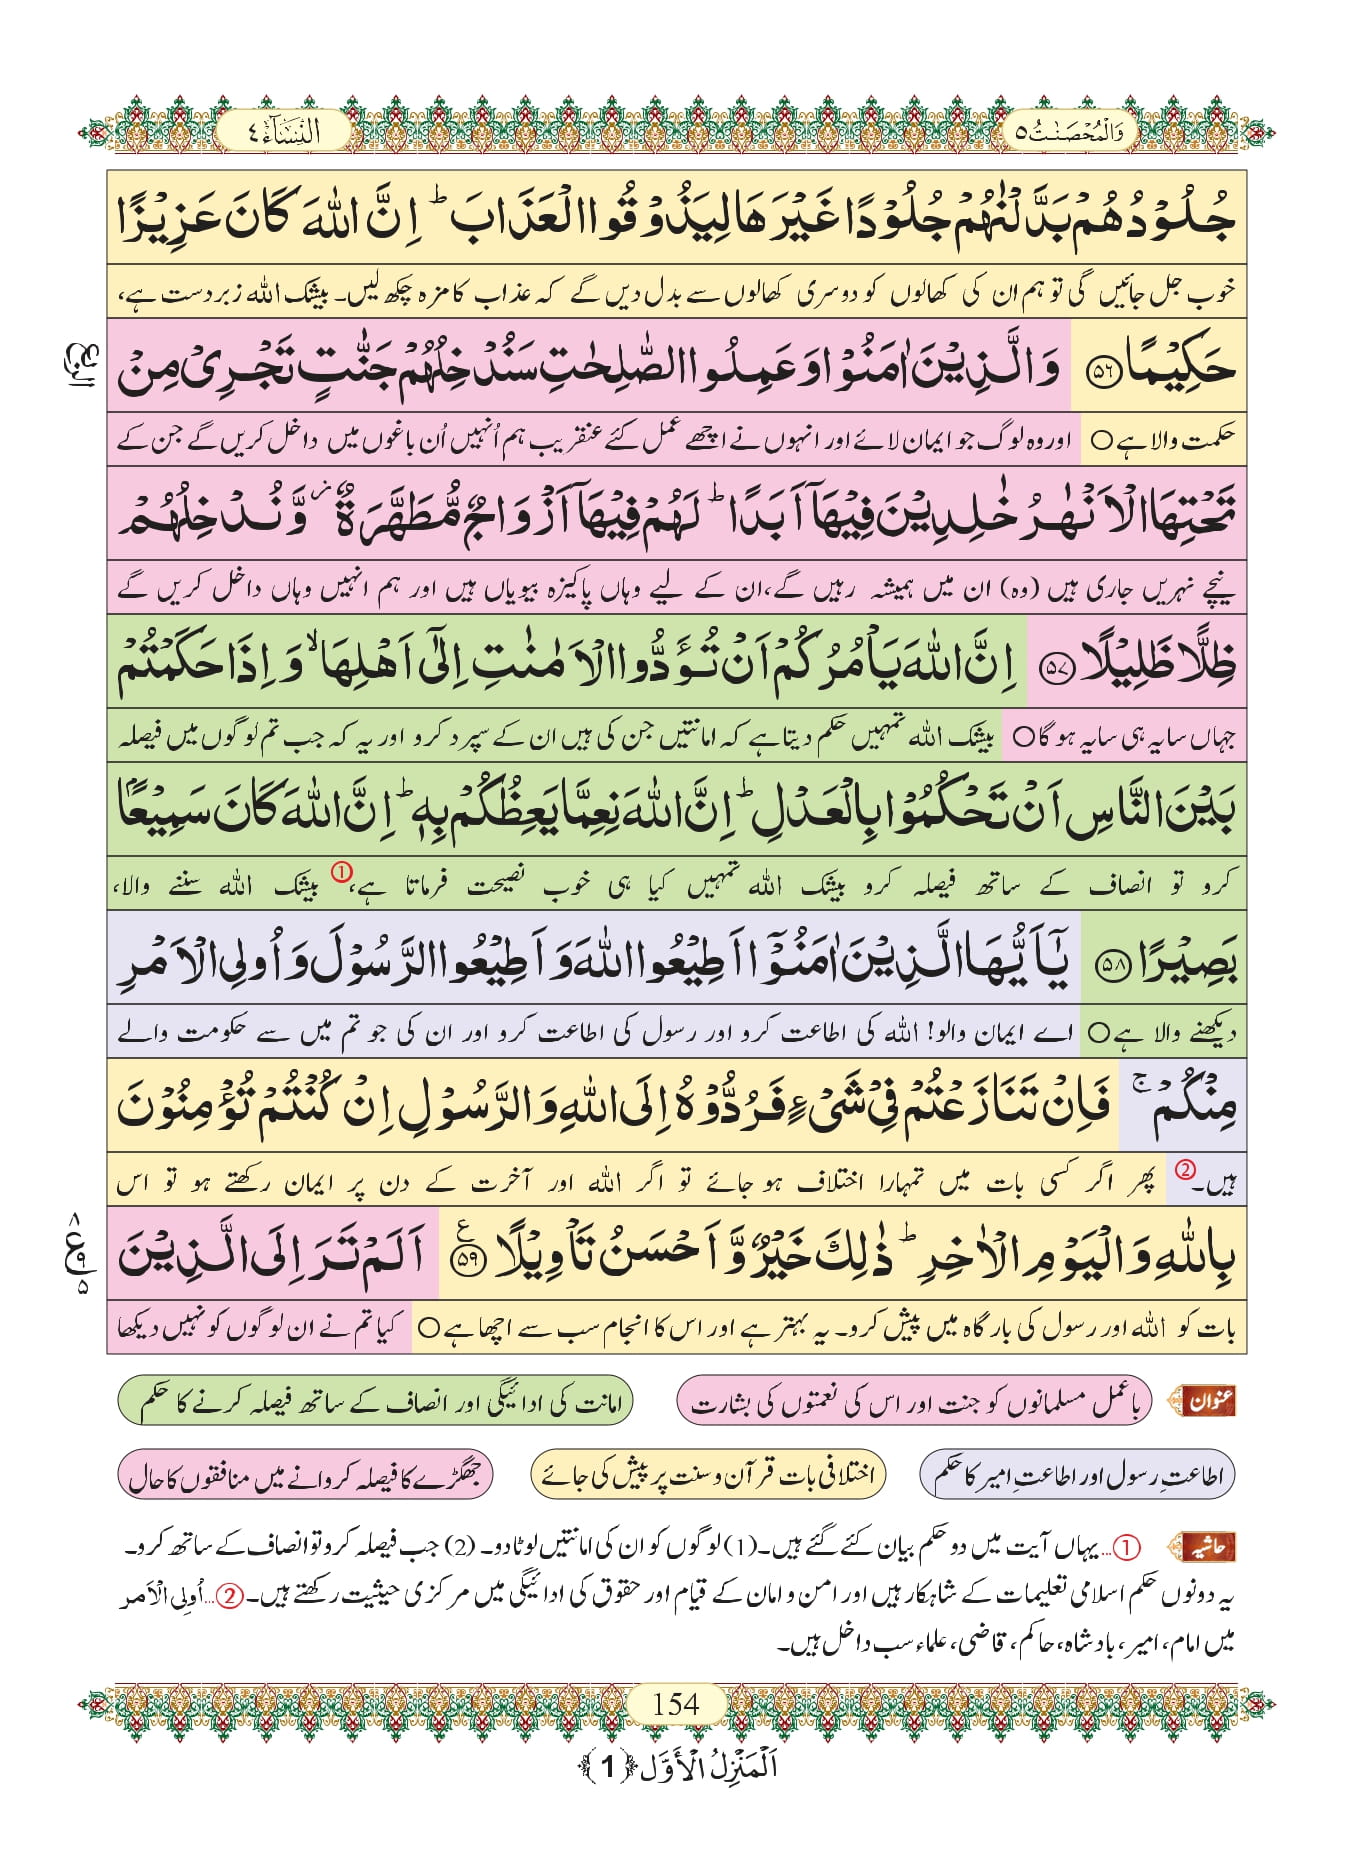 وَالْمُحْصَنٰتُ ٥
النِّسَآء ٤
جُلُوْدُهُمْ بَدَّلْنٰهُمْ جُلُوْدًا غَیْرَهَا لِیَذُوْقُوا الْعَذَابَؕ اِنَّ اللّٰهَ كَانَ عَزِیْزًا
خوب جل جائیں گی تو ہم ان کی کھالوں کو دوسری کھالوں سے بدل دیں گے کہ عذاب کا مزہ چکھ لیں۔ بیشک اللہ زبردست ہے،
حَكِیْمًا ﴿۵۶﴾ وَ الَّذِیْنَ اٰمَنُوْا وَ عَمِلُوا الصّٰلِحٰتِ سَنُدْخِلُهُمْ جَنّٰتٍ تَجْرِیْ مِنْ
الربع
حکمت والا ہے ○ اور وہ لوگ جو ایمان لائے اور انہوں نے اچھے عمل کئے عنقریب ہم اُنہیں اُن باغوں میں داخل کریں گے جن کے
تَحْتِهَا الْاَنْهٰرُ خٰلِدِیْنَ فِیْهَاۤ اَبَدًاؕ لَهُمْ فِیْهَاۤ اَزْوَاجٌ مُّطَهَّرَةٌ٘ وَّ نُدْخِلُهُمْ
نیچے نہریں جاری ہیں (وہ) ان میں ہمیشہ رہیں گے، ان کے لیے وہاں پاکیزہ بیویاں ہیں اور ہم انہیں وہاں داخل کریں گے
ظِلًّا ظَلِیْلًا ﴿۵۷﴾ اِنَّ اللّٰهَ یَاْمُرُكُمْ اَنْ تُؤَدُّوا الْاَمٰنٰتِ اِلٰۤى اَهْلِهَاۙ وَ اِذَا حَكَمْتُمْ
جہاں سایہ ہی سایہ ہو گا ○ بیشک اللہ تمہیں حکم دیتا ہے کہ امانتیں جن کی ہیں ان کے سپرد کرو اور یہ کہ جب تم لوگوں میں فیصلہ
بَیْنَ النَّاسِ اَنْ تَحْكُمُوْا بِالْعَدْلِؕ اِنَّ اللّٰهَ نِعِمَّا یَعِظُكُمْ بِهٖؕ اِنَّ اللّٰهَ كَانَ سَمِیْعًۢا
کرو تو انصاف کے ساتھ فیصلہ کرو بیشک اللہ تمہیں کیا ہی خوب نصیحت فرماتا ہے، ① بیشک اللہ سننے والا،
بَصِیْرًا ﴿۵۸﴾ یٰۤاَیُّهَا الَّذِیْنَ اٰمَنُوْۤا اَطِیْعُوا اللّٰهَ وَ اَطِیْعُوا الرَّسُوْلَ وَ اُولِی الْاَمْرِ
دیکھنے والا ہے ○ اے ایمان والو! اللہ کی اطاعت کرو اور رسول کی اطاعت کرو اور ان کی جو تم میں سے حکومت والے
مِنْكُمْۚ فَاِنْ تَنَازَعْتُمْ فِیْ شَیْءٍ فَرُدُّوْهُ اِلَى اللّٰهِ وَ الرَّسُوْلِ اِنْ كُنْتُمْ تُؤْمِنُوْنَ
ہیں۔ ② پھر اگر کسی بات میں تمہارا اختلاف ہو جائے تو اگر اللہ اور آخرت کے دن پر ایمان رکھتے ہو تو اس
بِاللّٰهِ وَ الْیَوْمِ الْاٰخِرِؕ ذٰلِكَ خَیْرٌ وَّ اَحْسَنُ تَاْوِیْلًا ﴿۵۹﴾ ع اَلَمْ تَرَ اِلَى الَّذِیْنَ
۸ ع ۹ ۵
بات کو اللہ اور رسول کی بارگاہ میں پیش کرو۔ یہ بہتر ہے اور اس کا انجام سب سے اچھا ہے ○ کیا تم نے ان لوگوں کو نہیں دیکھا
عنوان باعمل مسلمانوں کو جنت اور اس کی نعمتوں کی بشارت امانت کی ادائیگی اور انصاف کے ساتھ فیصلہ کرنے کا حکم
اطاعتِ رسول اور اطاعتِ امیر کا حکم اختلافی بات قرآن و سنت پر پیش کی جائے جھگڑے کا فیصلہ کروانے میں منافقوں کا حال
حاشیہ ①... یہاں آیت میں دو حکم بیان کئے گئے ہیں۔ (1) لوگوں کو ان کی امانتیں لوٹا دو۔ (2) جب فیصلہ کرو تو انصاف کے ساتھ کرو۔
یہ دونوں حکم اسلامی تعلیمات کے شاہکار ہیں اور امن و امان کے قیام اور حقوق کی ادائیگی میں مرکزی حیثیت رکھتے ہیں۔ ②... اُولِی الْاَمر
میں امام، امیر، بادشاہ، حاکم، قاضی، علماء سب داخل ہیں۔
154
اَلْمَنْزِلُ الْأَوَّل ﴿1﴾